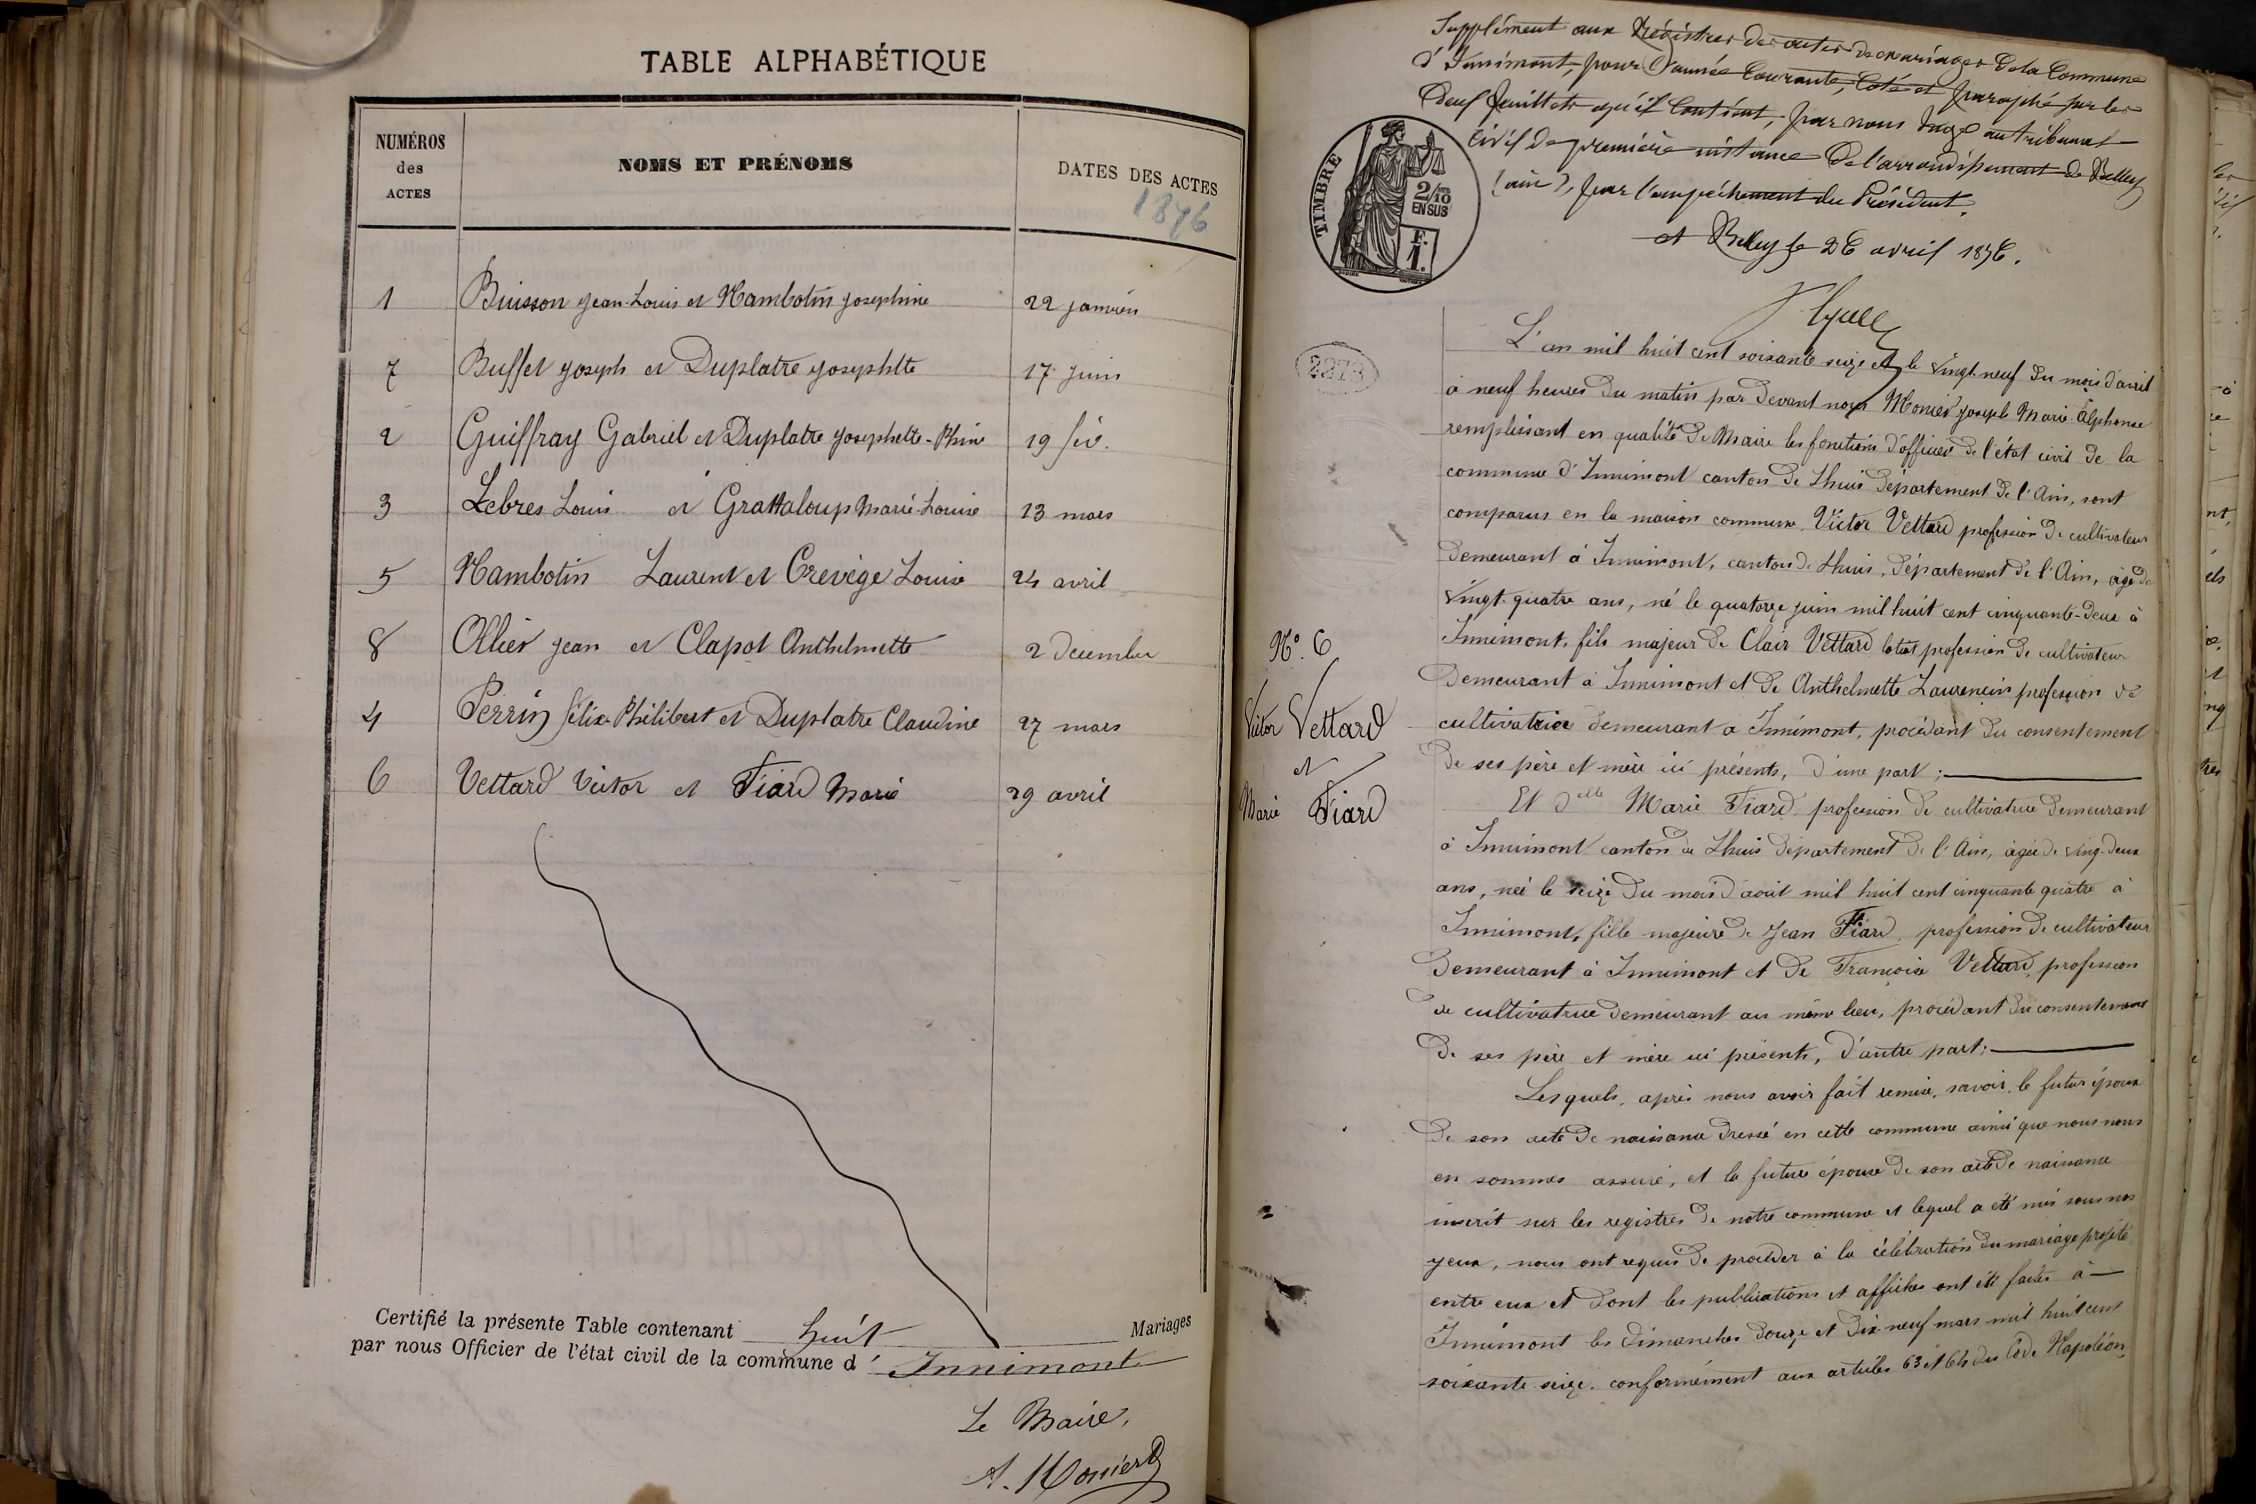 TABLE ALPHABÉTIQUE
NUMÉROS des ACTES
NOMS ET PRÉNOMS
DATES DES ACTES
1876
1 Buisson Jean-Louis et Hambotin Josephine 22 janvier
7 Buffet Joseph et Duplatre Josephtte 17 Juin
2 Guiffray Gabriel et Duplatre Josephette-Phine 19 fév.
3 Lebres Louis et Grattaloup Marie-Louise 13 mars
5 Hambotin Laurent et Crevège Louise 24 avril
8 Ollier Jean et Clapot Anthelmette 2 décembre
4 Perrin félix-Philibert et Duplatre Claudine 27 mars
6 Vettard Victor et Fiard Marie 29 avril
Certifié la présente Table contenant huit Mariages
par nous Officier de l'état civil de la commune d' Innimont
Le Maire,
A. Monier
Supplément aux Régistres des actes de mariages de la Commune
d'Innimont, pour l'année Courante, Coté et paraphé par les
deux feuillets qu'il Contient, par nous Juge au tribunal
Civil de première instance de l'arrondissement de Belley
(ain), par l'empéchement du Président.
à Belley le 26 avril 1876.
TIMBRE
2/10
EN SUS
F.
1.
2273
L'an mil huit cent soixante seize et le vingt-neuf du mois d'avril
à neuf heures du matin par devant nous Monier Joseph Marie Alphonse
remplissant en qualité de Maire les fonctions d'officier de l'état civil de la
commune d'Innimont canton de Lhuis département de l'Ain, sont
comparus en la maison commune Victor Vettard profession de cultivateur
demeurant à Innimont, canton de Lhuis, département de l'Ain, âgé de
vingt-quatre ans, né le quatorze juin mil huit cent cinquante-deux à
Innimont, fils majeur de Clair Vettard profession de cultivateur
demeurant à Innimont et de Anthelmette Laurencin profession de
cultivatrice demeurant à Innimont, procédant du consentement
de ses père et mère ici présents, d'une part;
N°. 6
Victor Vettard
et
Marie Fiard
Et delle Marie Fiard profession de cultivatrice demeurant
à Innimont canton de Lhuis département de l'Ain, âgée de ving-deux
ans, née le seize du mois d'août mil huit cent cinquante quatre à
Innimont, fille majeure de Jean Fiard, profession de cultivateur
demeurant à Innimont et de Françoise Vettard, profession
de cultivatrice demeurant au même lieu, procédant du consentement
de ses père et mère ici présents, d'autre part;
Lesquels, après nous avoir fait remise, savoir, le futur époux
de son acte de naissance dressé en cette commune ainsi que nous nous
en sommes assuré, et la future épouse de son acte de naissance
inscrit sur les registres de notre commune et lequel a été mis sous nos
yeux, nous ont requis de procéder à la célébration du mariage projeté
entre eux et dont les publications et affiches ont été faites à
Innimont les dimanches douze et dix neuf mars mil huit cent
soixante seize, conformément aux articles 63 et 64 du Code Napoléon,